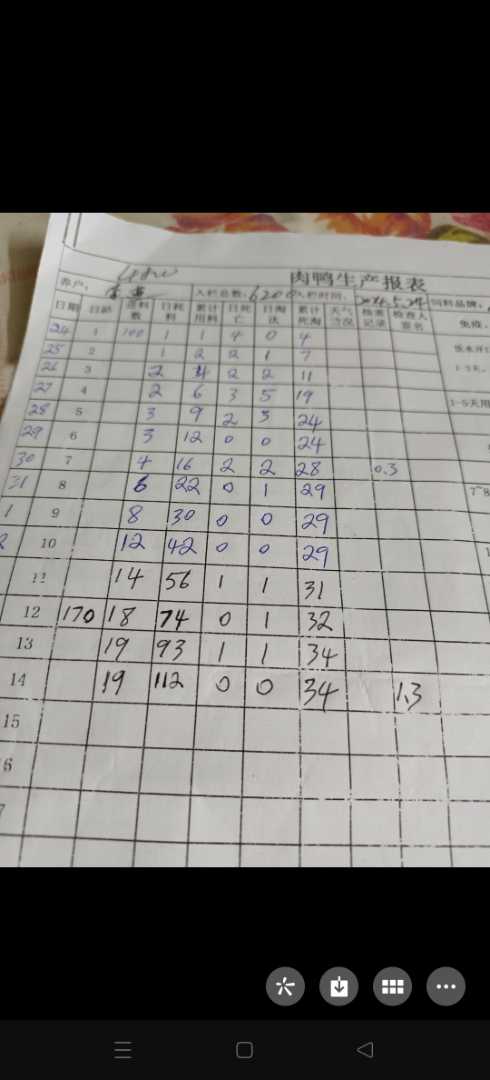 肉鸭生产报表
养户: 入栏总数: 6200 入栏时间: 2024.5.24 饲料品牌:
日期 日龄 进料数 日耗料 累计用料 日死亡 日淘汰 累计死淘 天气情况 检查记录 检查人签名 免疫:
24 1 100 1 1 4 0 4
25 2 1 2 2 1 7
26 3 2 4 2 2 11 1-3天,
27 4 2 6 3 5 19
28 5 3 9 2 3 24 1-5天用
29 6 3 12 0 0 24
30 7 4 16 2 2 28 0.3
31 8 6 22 0 1 29 7~8
1 9 8 30 0 0 29
2 10 12 42 0 0 29
11 14 56 1 1 31
12 170 18 74 0 1 32
13 19 93 1 1 34
14 19 112 0 0 34 1.3
15
6
7